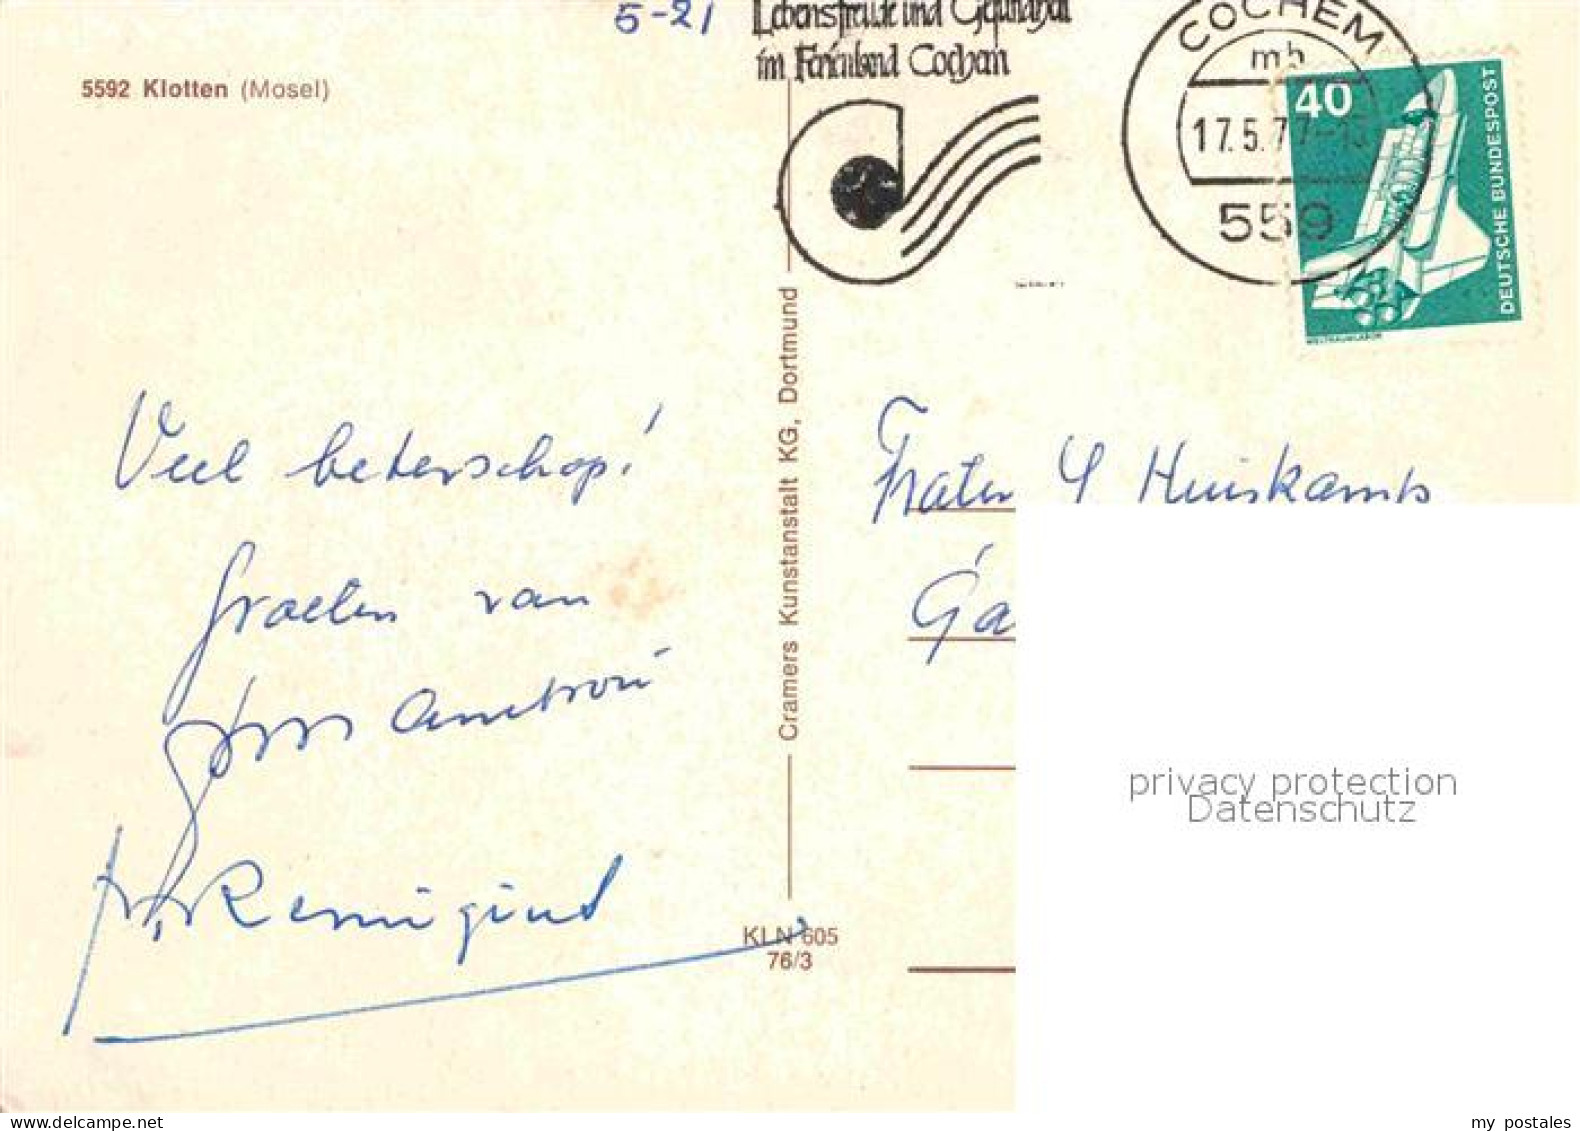 5-21
Lebensfreude und Gesundheit
im Ferienland Cochem
COCHEM
mb
17.5.77-15
559
40
DEUTSCHE BUNDESPOST
WELTRAUMLABOR
5592 Klotten (Mosel)
Veel beterschap!
groeten van
Remigius
Cramers Kunstanstalt KG, Dortmund
KLN 605
76/3
Frater Huiskamp
Ga
privacy protection
Datenschutz
my postales